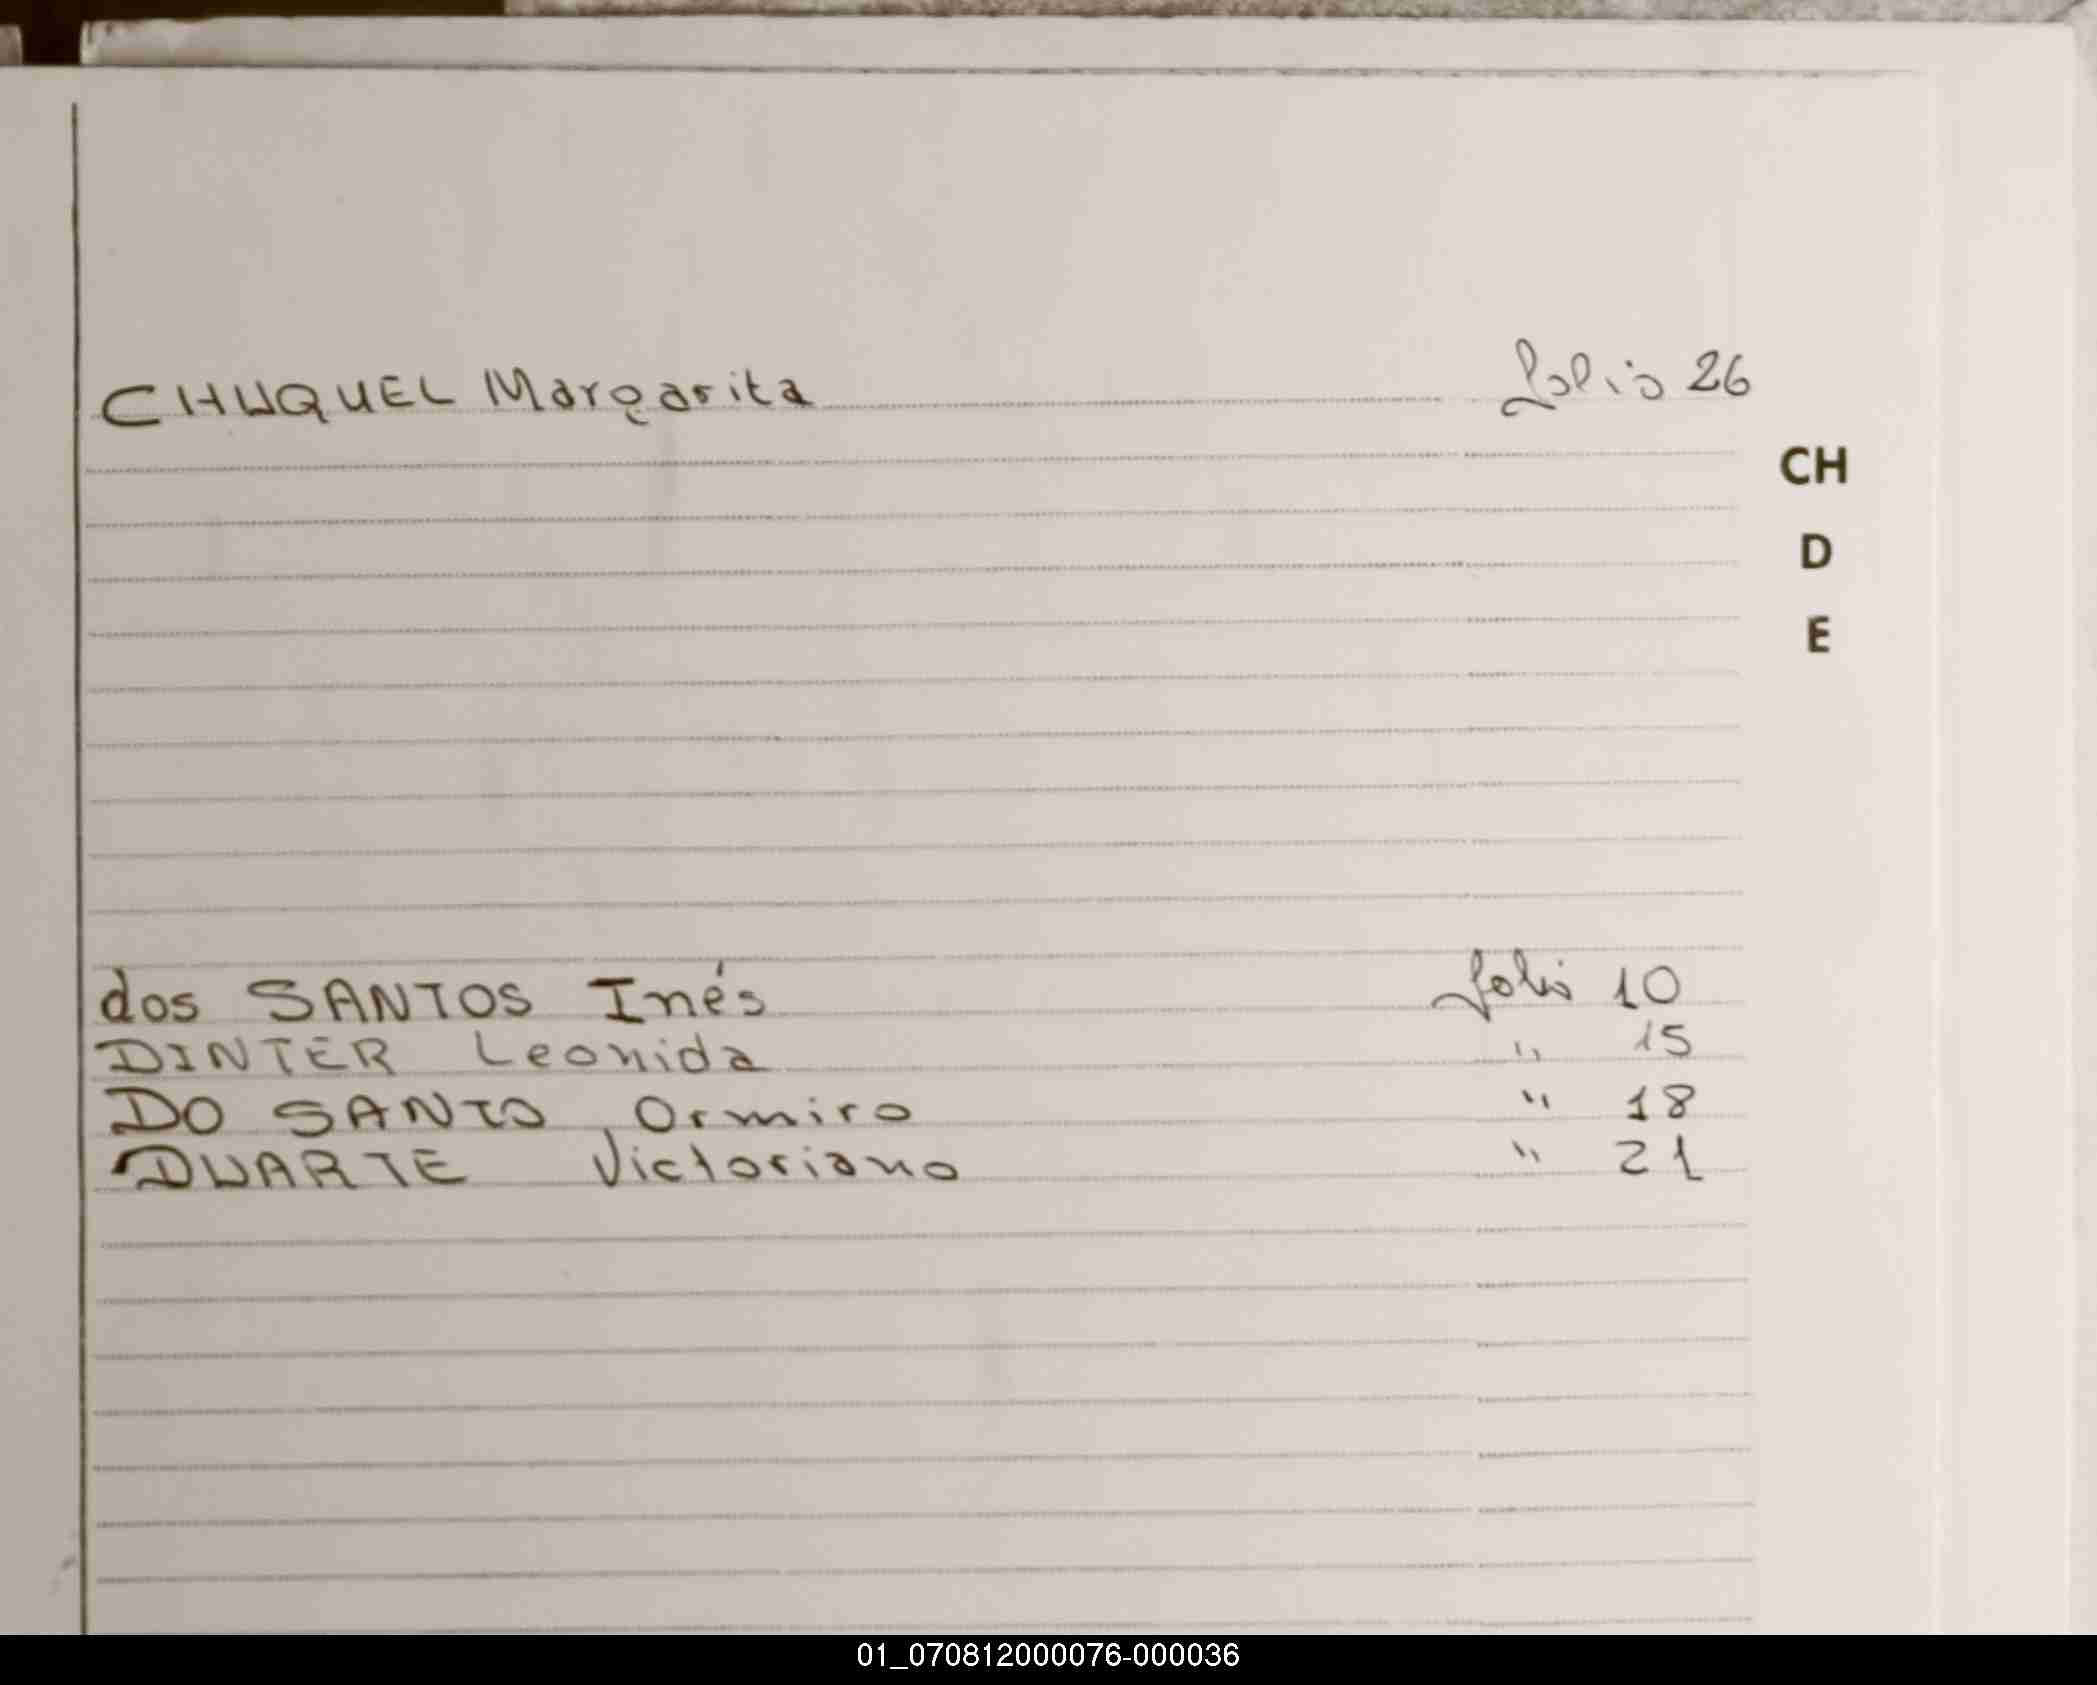 CHUQUEL Margarita folio 26
CH
D
E
dos SANTOS Inés folio 10
DINTER Leonida " 15
DO SANTO Ormiro " 18
DUARTE Victoriano " 21
01_070812000076-000036